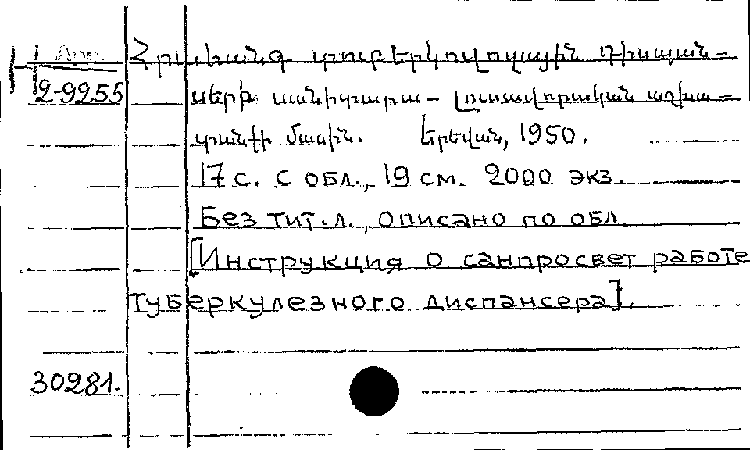 Арм.
2-9255
Հրահանգ տուբերկուլոզային դիսպան-
սերի սանիտարա-լուսավորական աշխա-
տանքի մասին. Երեվան, 1950.
17 с. с обл., 19 см. 2000 экз.
Без тит. л., описано по обл.
[Инструкция о санпросвет работе
туберкулезного диспансера].
30281.